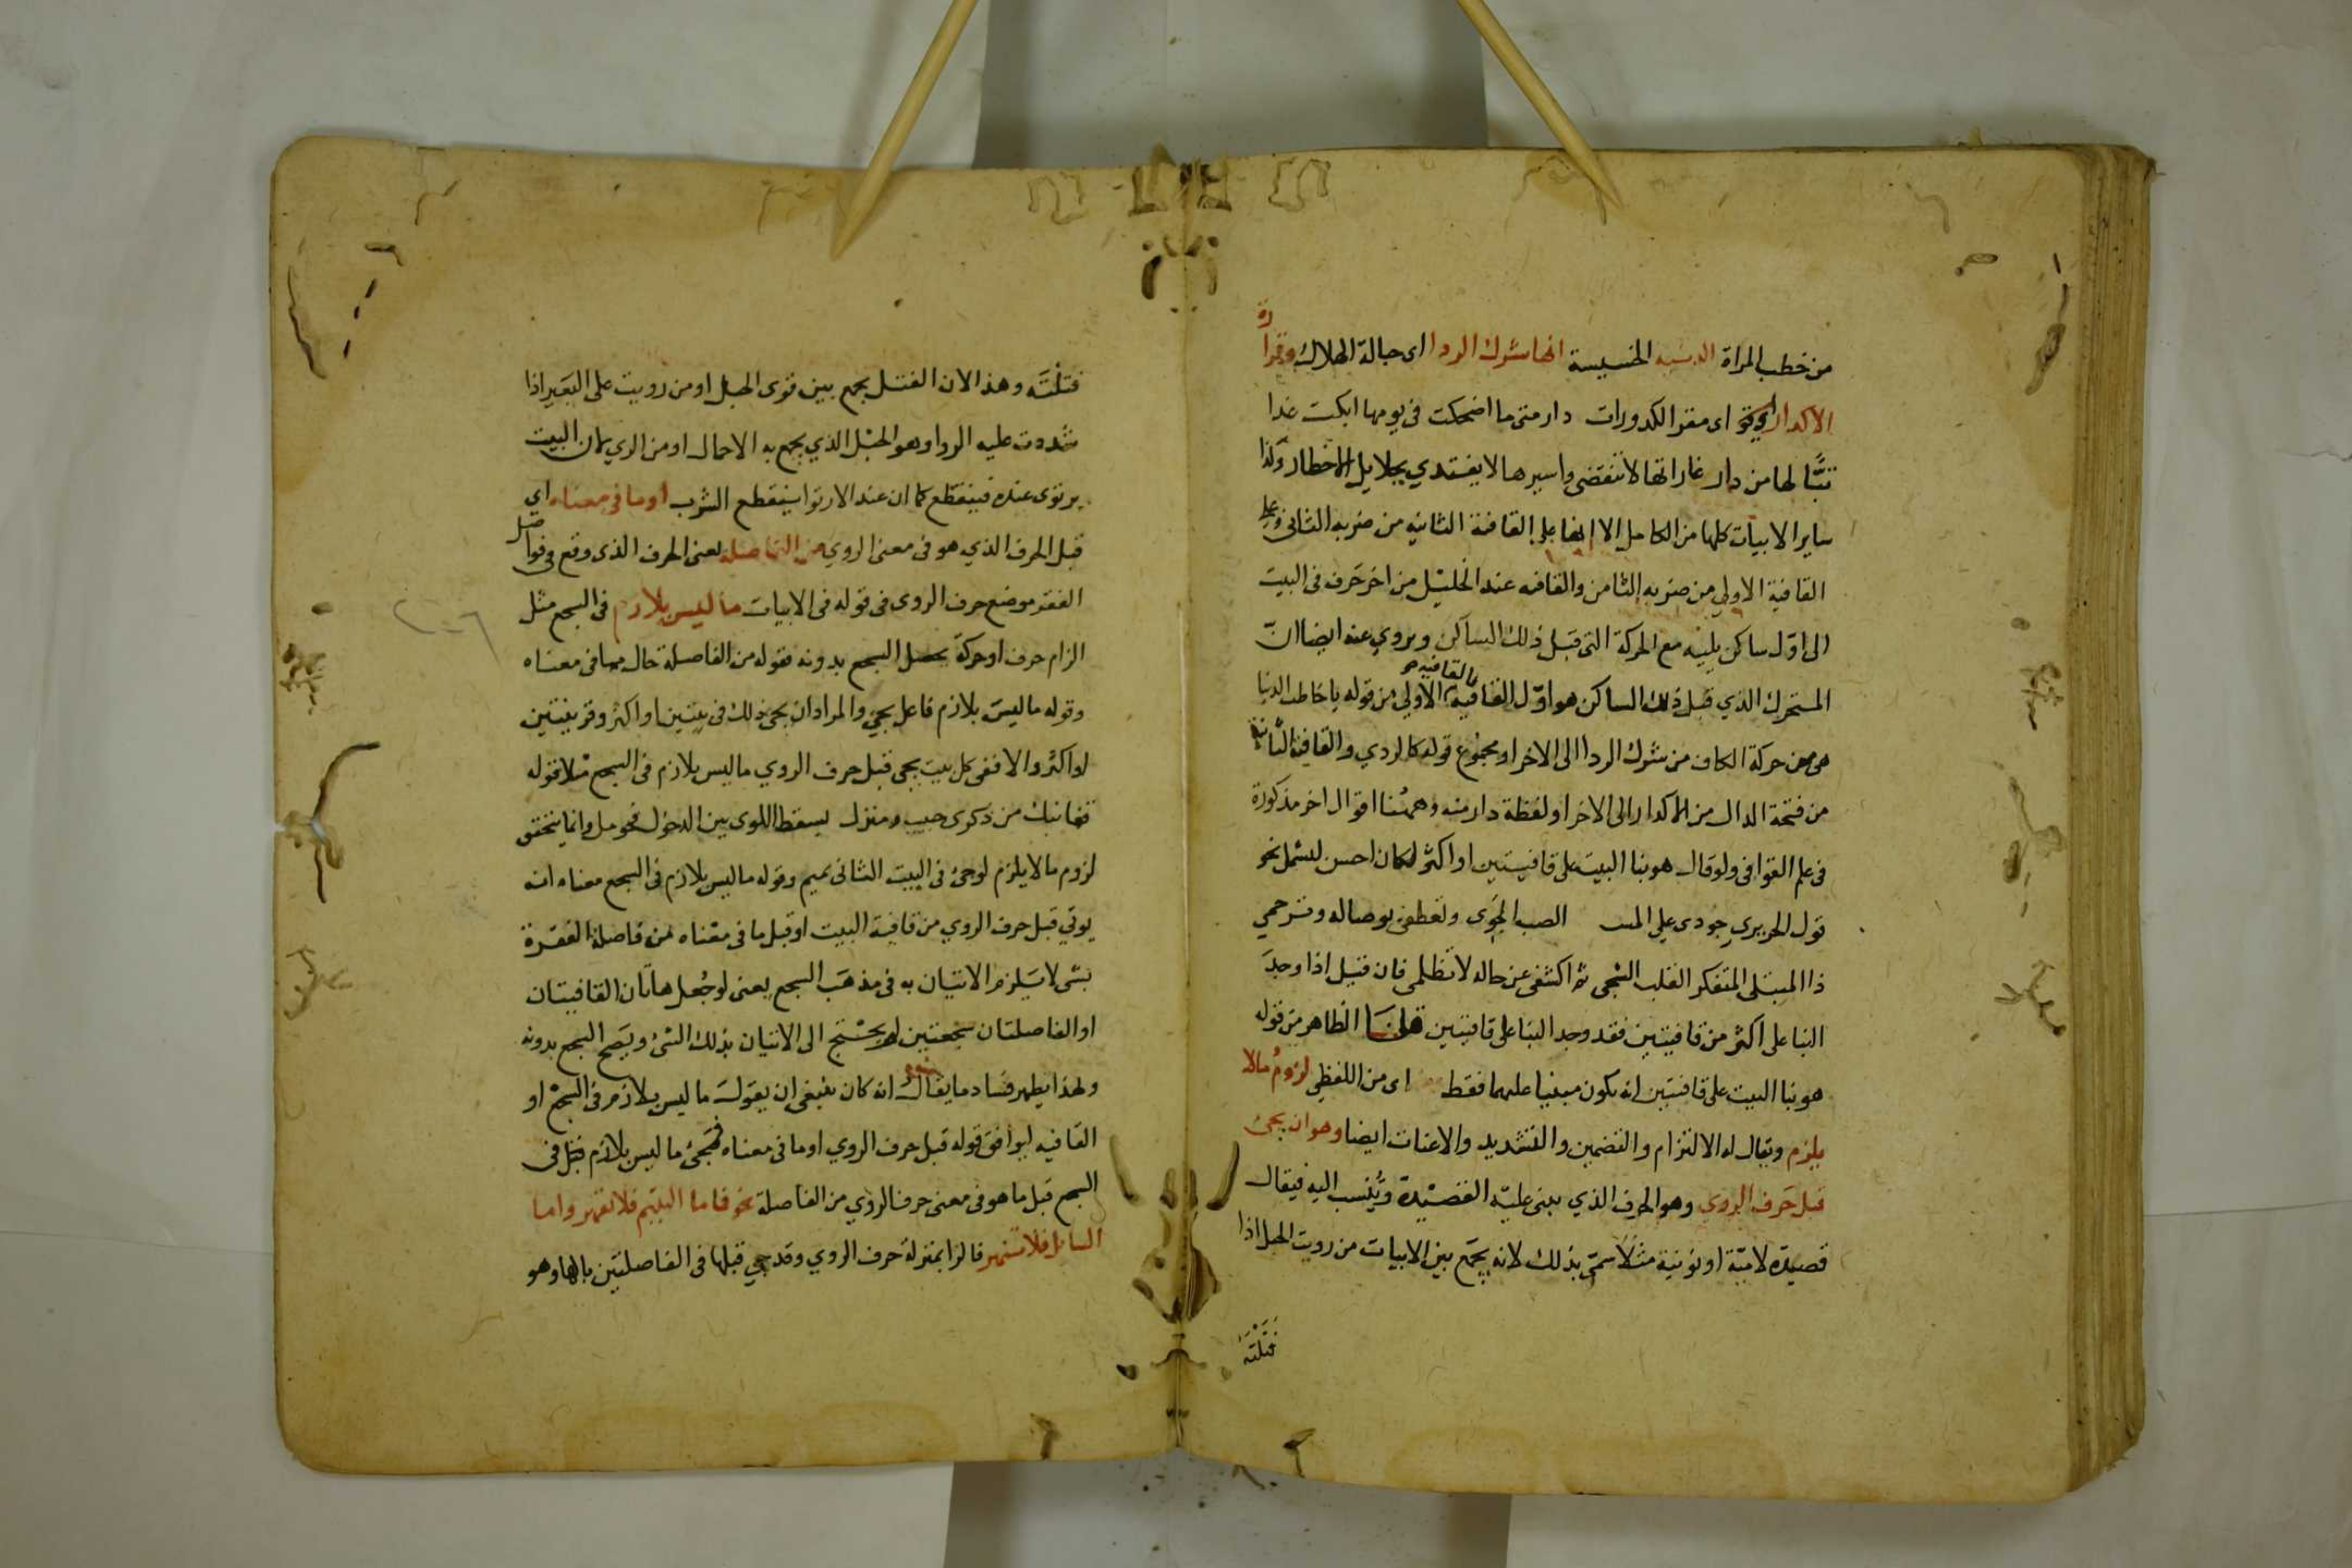 من خطب المراة الدنيه الخسيسة انها شرك الردا اى حبالة الهلاك وقرارة
الاكدار اى مقر الكدورات دار متى ما اضحكت فى يومها ابكت غدا
تبًّا لها من دار غاراتها لا تنقضى واسيرها لا يفتدي بجلايل الاخطار وكذا
ساير الابيات كلها من الكامل الا انها على القافية الثانيه من ضربه الثانى وعلى
القافية الاولي من ضربه الثامن والقافيه عند الخليل من اخر حرف فى البيت
الى اوّل ساكن يليه مع الحركة التى قبل ذلك الساكن ويروي عنه ايضا انّ
المتحرك الذي قبل ذلك الساكن هو اوّل القافية فالقافيه الاولي من قوله يا خاطب الدنيا
هى من حركة الكاف من شرك الردا الى الاخر او مجموع قوله كالردي والقافية الثانية
من فتحة الدال من الاكدار الى الاخر او لفظة دار منه وههنا اقوال اخر مذكورة
فى علم القوافى ولو قال هو بنا البيت على قافيتين او اكثر لكان احسن ليشمل نحو
قول الحريري جودى على المستهتر الصب الجوى وتعطفى بوصاله وترحمي
ذا المبتلى المتفكر القلب الشجى ثم اكشفى عن حاله لا تظلمى فان قيل اذا وجدَ
البنا على اكثر من قافيتين فقد وجد البنا على قافيتين قلنا الظاهر من قوله
هو بنا البيت على قافيتين انه يكون مبنيا عليهما فقط اى من اللفظي لزوم مالا
يلزم ويقال له الالتزام والتضمين والتشديد والاعنات ايضا وهو ان يجئ
قبل حرف الروي وهو الحرف الذي يبنى عليه القصيدة ويُنسب اليه فيقال
قصيدة لاميّة او نونية مثلًا سمّى بذلك لانه يجمع بين الابيات من رويت الحبل اذا
فَتَلْتَه
فتلْتَه وهذا لان الفتل يجمع بين قوى الحبل او من رويت على البعير اذا
شددت عليه الردا وهو الحبل الذي يجمع به الاحمال او من الري لان البيت
يرتوى عنده فينقطع كما ان عند الارتوا ينقطع الشرب او ما فى معناه اي
قبل الحرف الذي هو فى معنى الروي من الفاصلة يعنى الحرف الذى وقع فى فواصل
الفقر موضع حرف الروى فى قوله فى الابيات ما ليس بلازم فى السجع مثل
الزام حرف او حركة يحصل السجع بدونه فقوله من الفاصلة حال مما فى معناه
وقوله ما ليس بلازم فاعل يجئ والمراد ان يجئ ذلك فى بيتين او اكثر وقرينتين
او اكثر والا ففى كل بيت يجى قبل حرف الروي ما ليس بلازم فى السجع مثلا قوله
قفا نبك من ذكرى حبيب ومنزل بسقط اللوى بين الدخول فحومل وانما يتحقق
لزوم مالا يلزم لو جئ فى البيت الثانى بميم وقوله ما ليس بلازم فى السجع معناه انه
يوتي قبل حرف الروي من قافية البيت او قبل ما فى معناه من فاصلة الفقرة
بشى لا يلزم الاتيان به فى مذهب السجع يعنى لو جُعل هاتان القافيتان
او الفاصلتان سجعتين لم يحتج الى الاتيان بذلك الشئ ويصح السجع بدونه
ولهذا يظهر فساد ما يقال انه كان ينبغى ان يقول ما ليس بلازم فى السجع او
القافيه ليوافق قوله قبل حرف الروي او ما فى معناه فمجئ ما ليس بلازم قبل فى
السجع قبل ما هو فى معنى حرف الروي من الفاصلة نحو فاما اليتيم فلا تقهر واما
السائل فلا تنهر فالرا بمنزلة حرف الروي وقد جي قبلها فى الفاصلتين بالها وهو